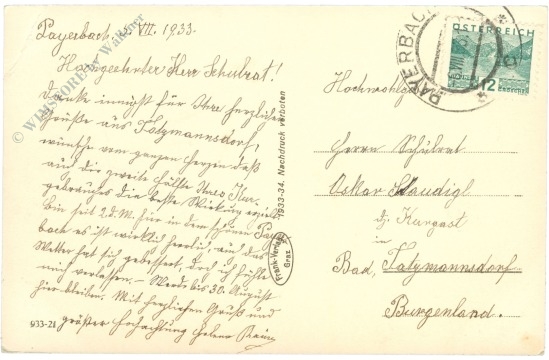 Payerbach, 2. VII. 1933.
Hochgeehrter Herr Schulrat!
Danke innigst für Ihre herzlichen
Grüße aus Tatzmannsdorf,
wünsche vom ganzen Herzen daß
auf die zweite Hälfte Ihres Kur-
gebrauches die beste Wirkung
bin seit 2. d. M. hier in dem schönen Pay-
bach es ist wirklich herrlich, auch das
Wetter hat sich gebessert, doch ich fühle
mich verlassen. – Werde bis 30. August
hier bleiben. Mit herzlichen Gruß und
größter Hochachtung Helene
933-21
1933-34. Nachdruck verboten
Frank-Verlag
Graz
© WIMSOREby Wallner
PAYERBACH
ÖSTERREICH
12
Hochwohlgeb.
Herrn Schulrat
Oskar Staudigl
dz. Kurgast
in
Bad Tatzmannsdorf
Burgenland.